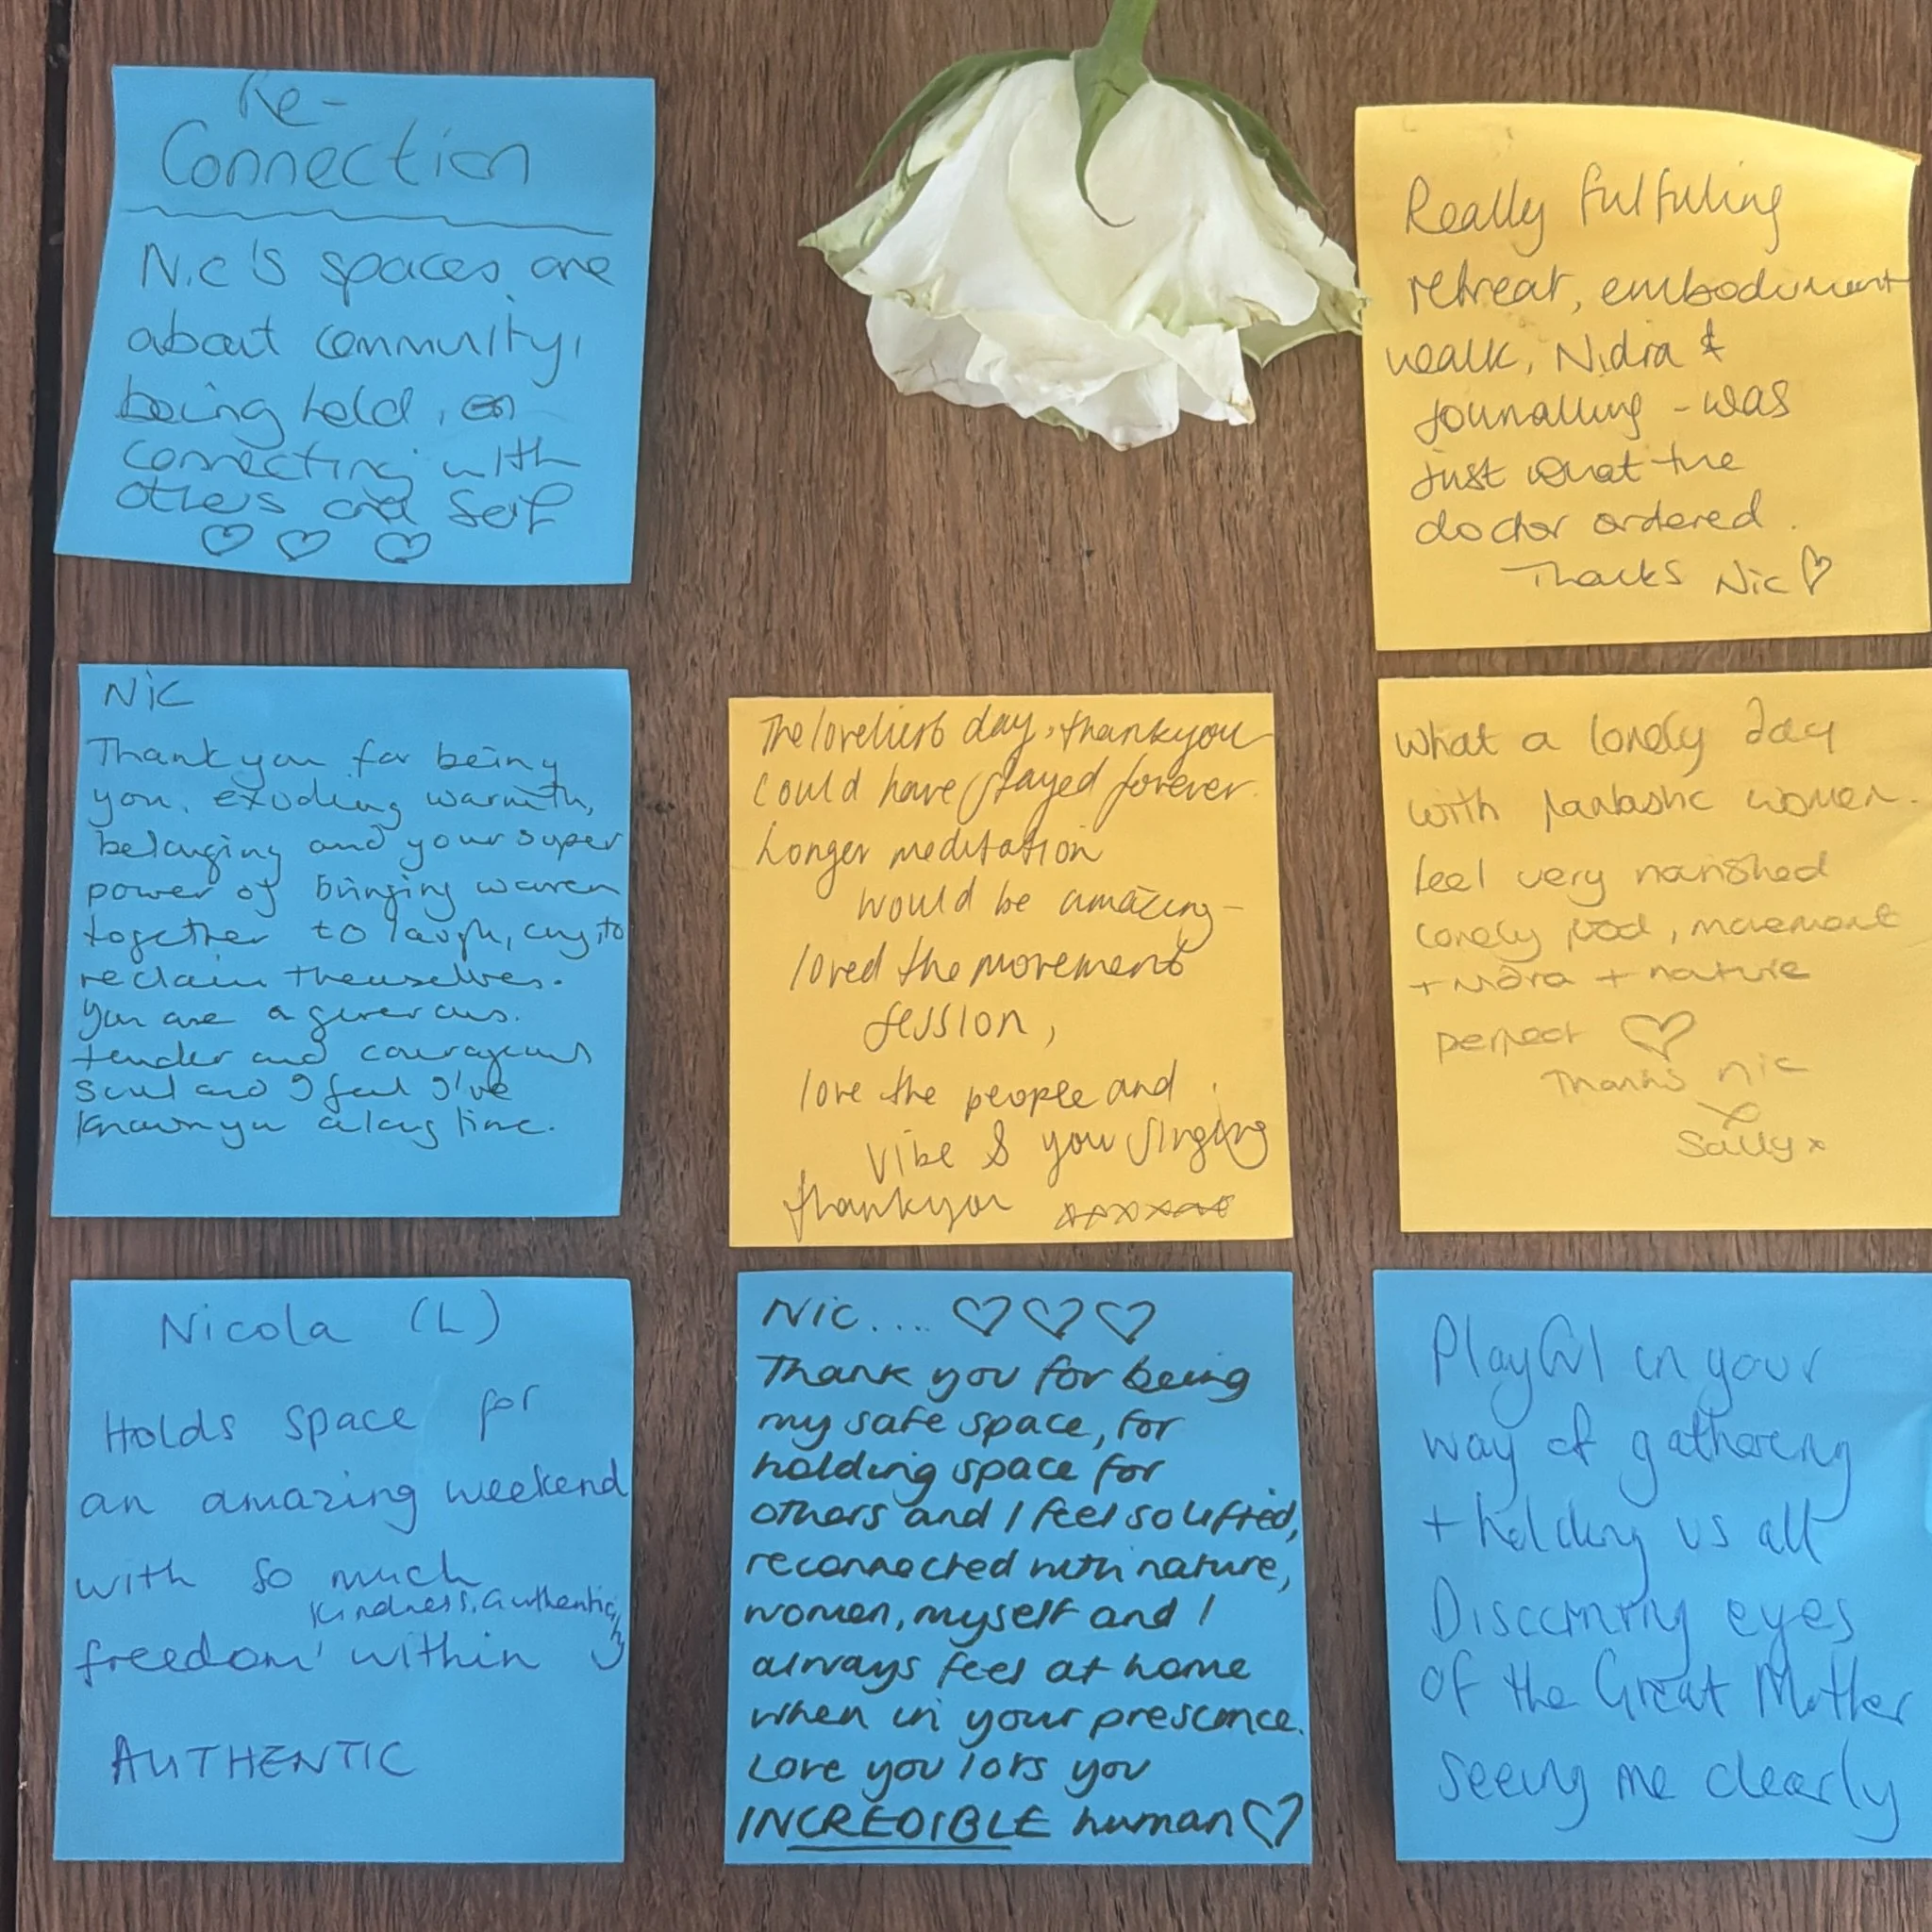 Re-
Connection
Nic's spaces are
about community,
being held, on
connecting with
others and self
Really fulfilling
retreat, embodiment
walk, Nidra &
journalling - was
just what the
doctor ordered.
Thanks Nic
Nic
Thank you for being
you. exuding warmth,
belonging and your super
power of bringing women
together to laugh, cry, to
reclaim themselves.
You are a generous.
tender and courageous
soul and I feel I've
known you a long time.
The loveliest day, thankyou
Could have stayed forever.
Longer meditation
would be amazing -
loved the movement
session,
love the people and
vibe & you singing
thankyou xxxxxx
What a lovely day
with fantastic women.
feel very nourished
lovely food, movement
+ Nidra + nature
perfect
Thanks nic
x
Sally x
Nicola (L)
Holds space for
an amazing weekend
with so much
kindness, authentic,
freedom within
AUTHENTIC
Nic....
Thank you for being
my safe space, for
holding space for
others and I feel so lifted,
reconnected with nature,
women, myself and I
always feel at home
when in your prescence.
Love you lots you
INCREDIBLE human
Playful in your
way of gathering
+ holding us all
Discerning eyes
of the Great Mother
seeing me clearly